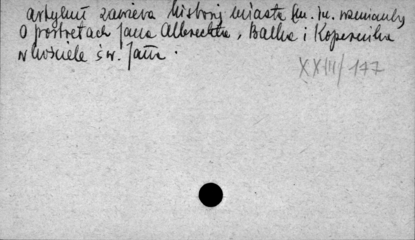 artykuł zawiera historję miasta (m. in. wzmianki
o portretach Jana Albrechta, Balka i Kopernika
w kościele św. Jana.
XXIII/177